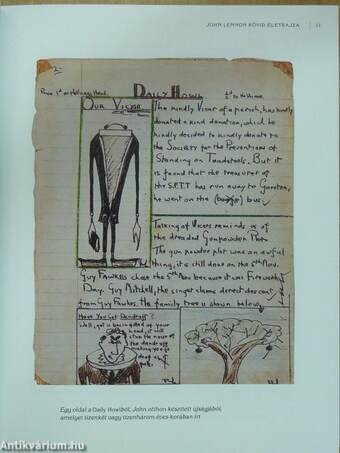 JOHN LENNON RÖVID ÉLETRAJZA 11
DAILY HOWL
OUR VICAR
The kindly Vicar of a parish, has kindly
donated a kind donation, which he
kindly decided to kindly donate to
the Society for the Preventions of
Standing on Toadstools. But it
is found that the treasurer of
the S.P.T.T has run away to
he went on the bus.
Talking of Vicars reminds us of
the dreaded Gunpowder Plot.
The gun powder plot was an awful
thing, it is still done on the 5th Nov.
GUY FAWKES chose the 5th Nov because it was Firework
Day. Guy Mitchell, the singer claims direct descent
from Guy Fawkes. The family tree is shown below
HAVE YOU GOT DANDRUFF?
Well, get a
Egy oldal a Daily Howlból, John otthon készített újságjából,
amelyet tizenkét vagy tizenhárom éves korában írt
Antikvárium.hu